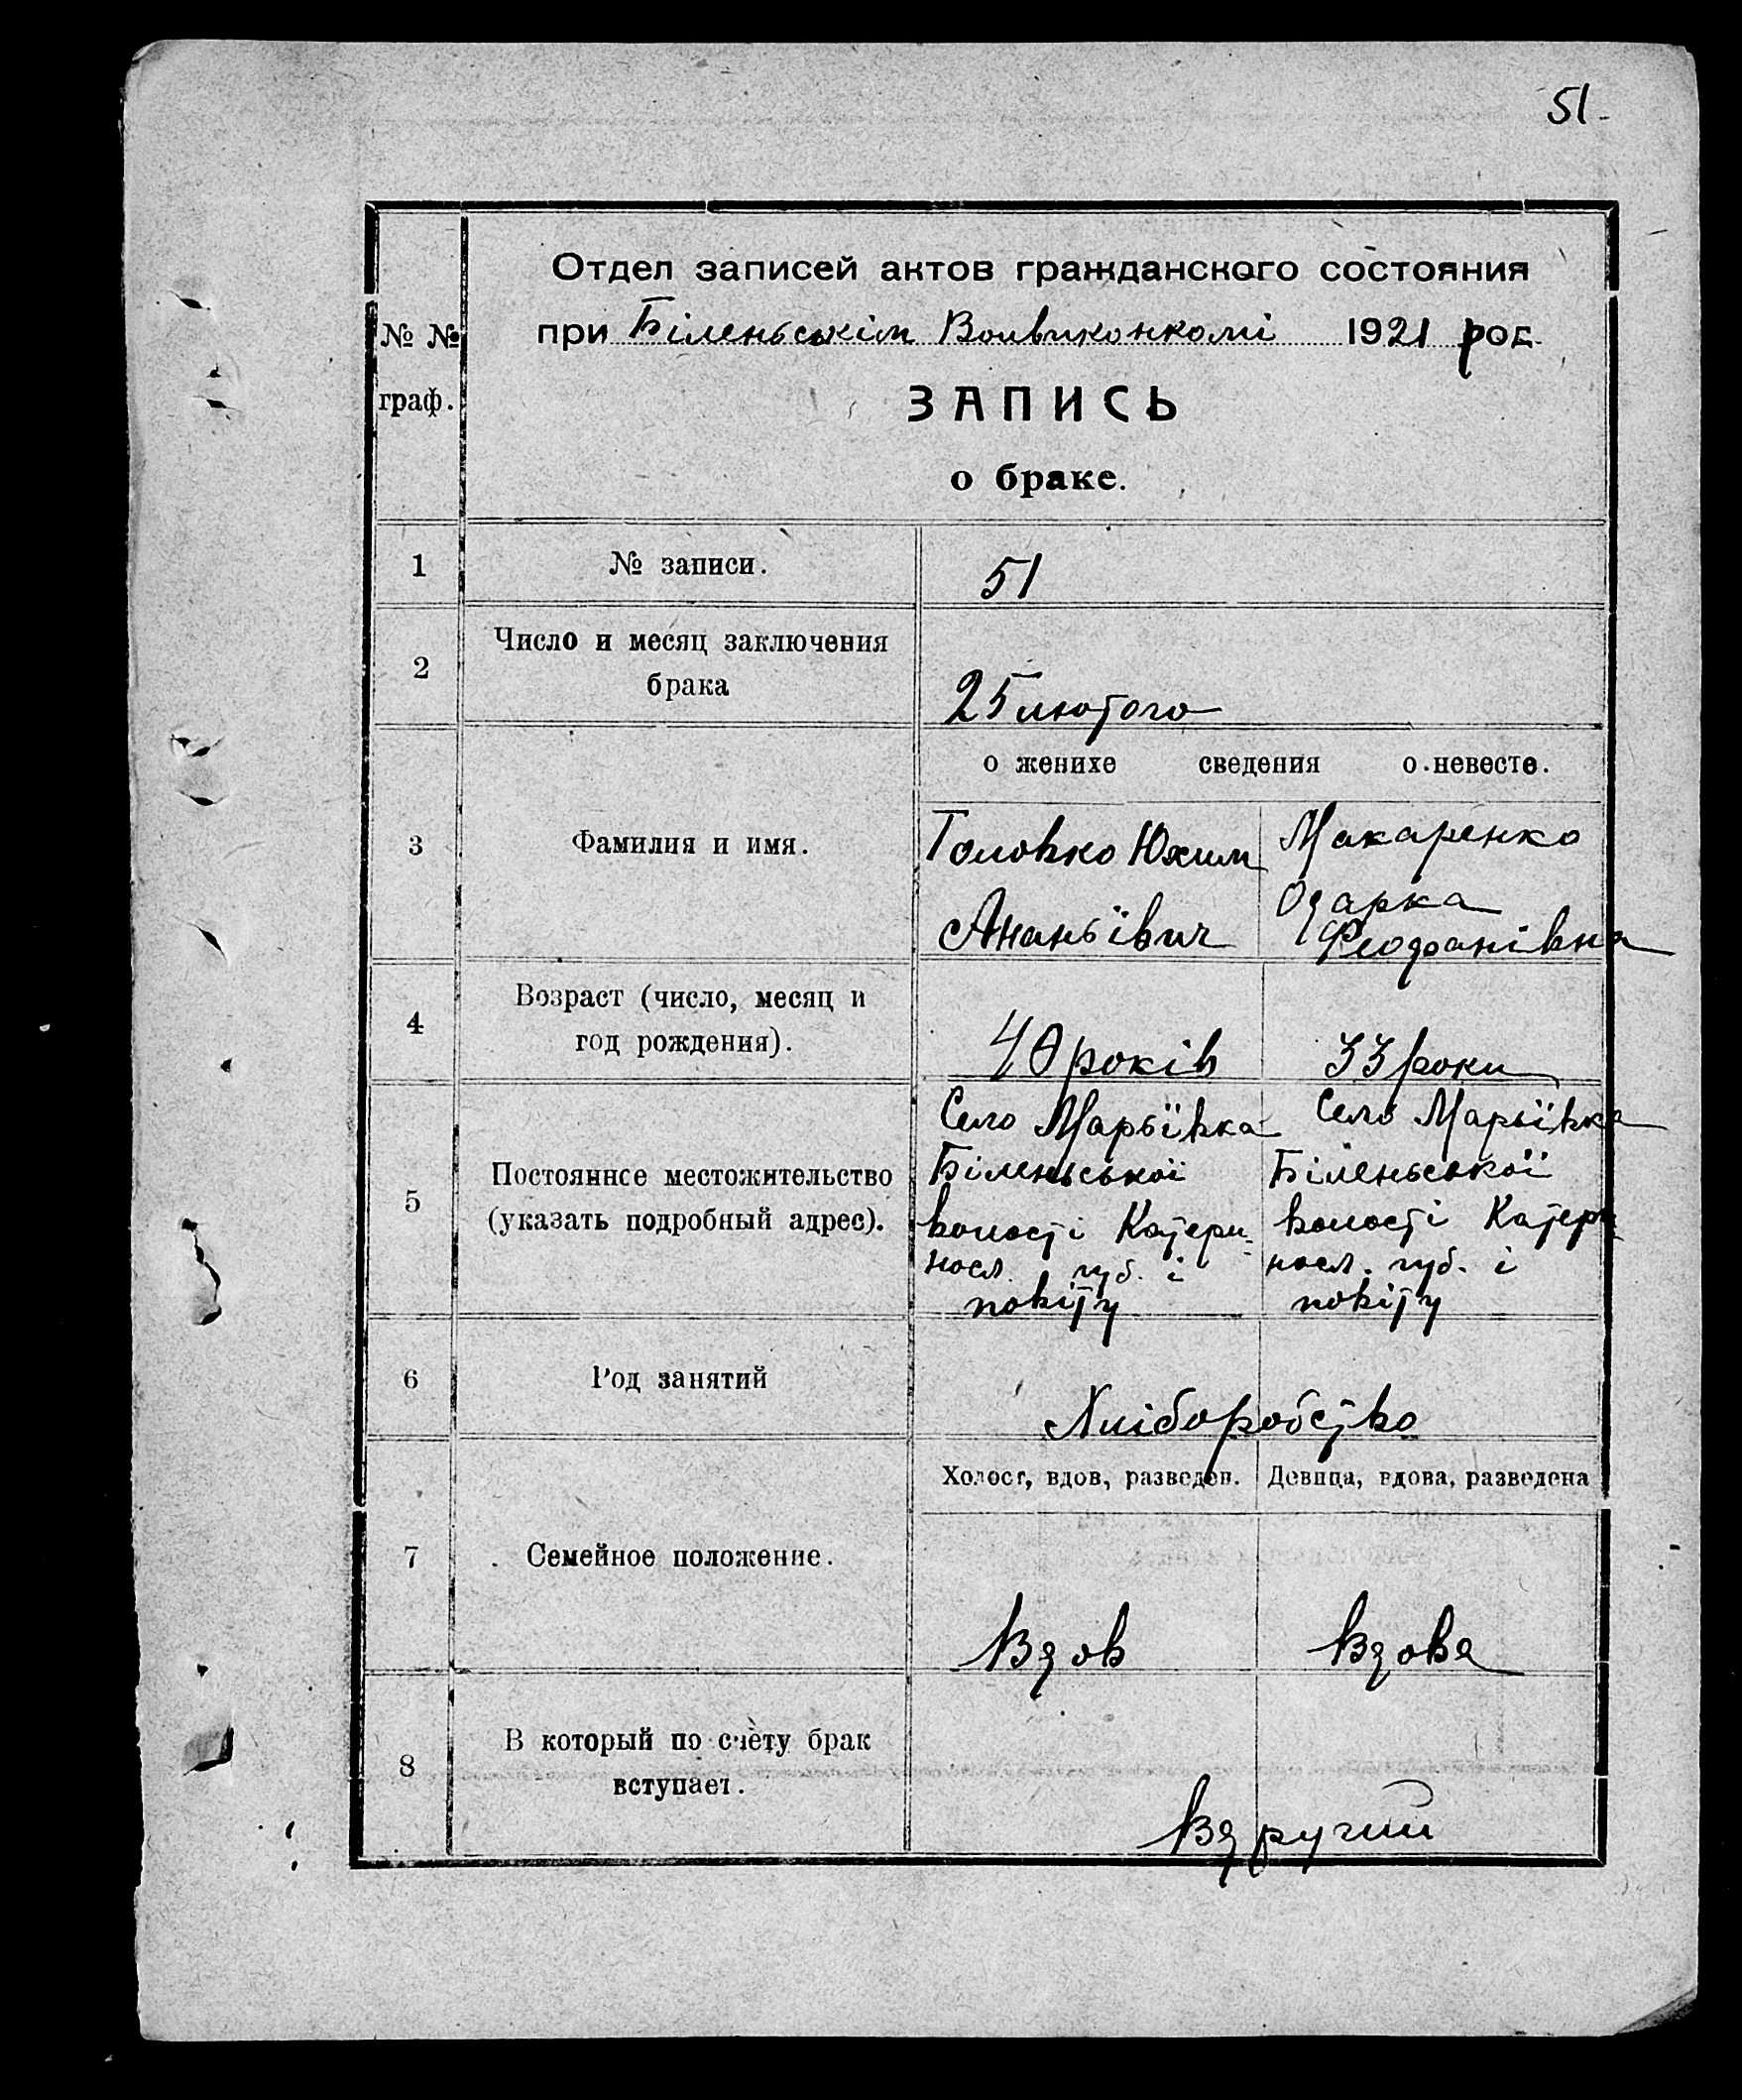 51.
Отдел записей актов гражданского состояния
№ №
граф.
при Біленьськім Волвиконкомі 1921 рос.
ЗАПИСЬ
о браке.
1 № записи. 51
2 Число и месяц заключения
брака
25 лютого
о женихе сведения о невесте.
3 Фамилия и имя.
Головко Юхим
Ананьївич
Макаренко
Одарка
Феофанівна
4 Возраст (число, месяц и
год рождения).
40 років 33 роки
5 Постоянное местожительство
(указать подробный адрес).
Село Марьївка
Біленьської
волості Катери-
носл. губ. і
повіту
Село Марьївка
Біленьської
волості Катери-
носл. губ. і
повіту
6 Род занятий
Хліборобство
Холост, вдов, разведен. Девица, вдова, разведена
7 Семейное положение.
Вдов Вдова
8 В который по счету брак
вступает.
Вдругий